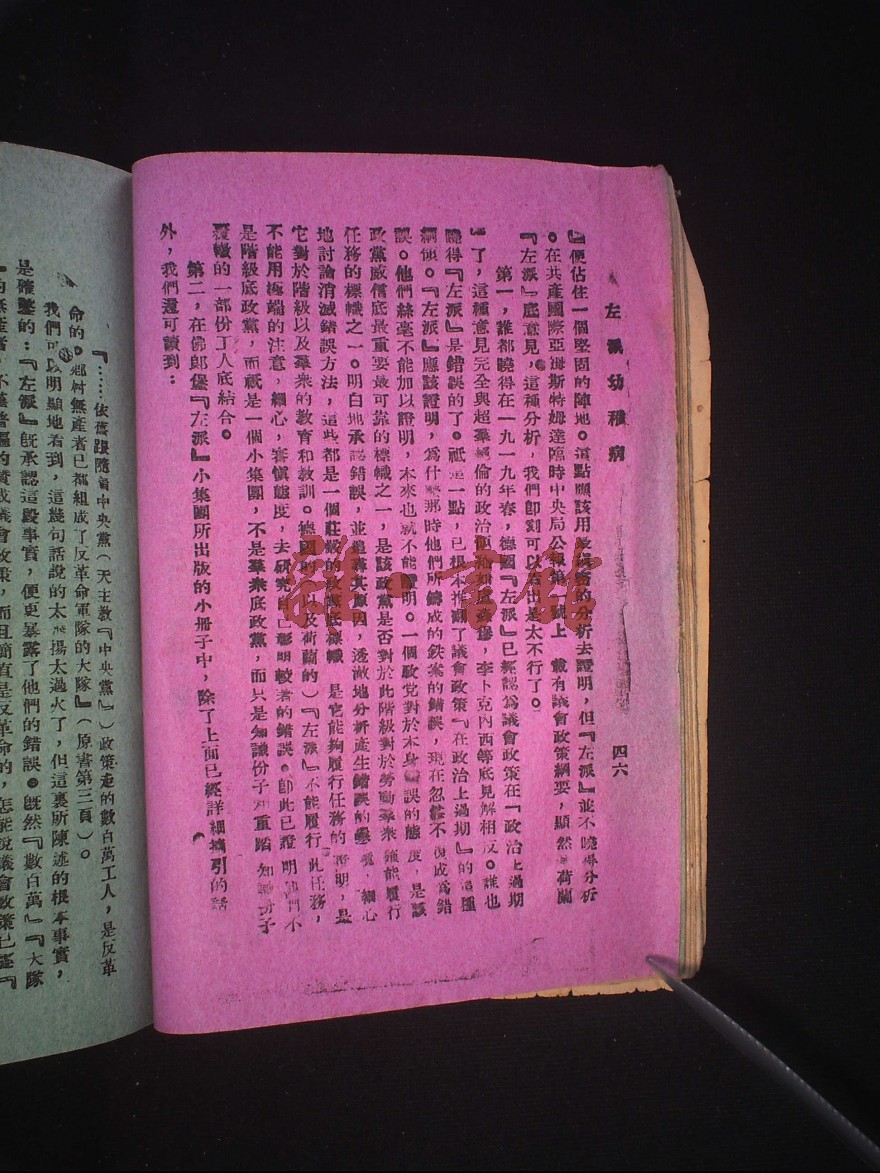 左派幼稚病
四六
』便佔住一個堅固的陣地。這點應該用最慎密的分析去證明,但『左派』並不曉得分析
。在共產國際亞姆斯特姆達臨時中央局公報第一號上 載有議會政策綱要,顯然 荷蘭
『左派』底意見,這種分析,我們即刻可以看出是太不行了。
第一,誰都曉得在一九一九年春,德國『左派』已經認為議會政策在『政治上過期
』了,這種意見完全與超羣絕倫的政治 李卜克內西等底見解相反。誰也
曉得『左派』是錯誤的了。祇這一點,已根本推翻了議會政策『在政治上過期』的這種
綱領。『左派』應該證明,為什麼那時他們所鑄成的鉄案的錯誤,現在忽然不復成為錯
誤。他們絲毫不能加以證明,本來也就不能證明。一個政党對於本身錯誤的態度,是該
政黨威信底最重要最可靠的標幟之一,是該政黨是否對於此階級對於勞動羣衆 能履行
任務的標幟之一。明白地承認錯誤,並追尋其原因,透澈地分析產生錯誤的 細心
地討論消滅錯誤方法,這些都是一個莊嚴的政黨底標幟 是它能夠履行任務的 明,是
它對於階級以及羣衆的教育和教訓。德國的(以及荷蘭的)『左派』不能履行此任務,
不能用極端的注意,細心,審慎態度,去研究自己彰明較著的錯誤。即此已證明他們不
是階級底政黨,而祇是一個小集團,不是羣衆底政黨,而只是知識份子和重蹈 知識份子
覆轍的一部份工人底結合。
第二,在佛郎堡『左派』小集團所出版的小冊子中,除了上面已經詳細摘引的話
外,我們還可讀到:
『……依舊跟隨着中央黨(天主教『中央黨』)政策走的數百萬工人,是反革
命的。鄉村無產者已都組成了反革命軍隊的大隊』(原書第三頁)。
我們可以明顯地看到,這幾句話說的太 揚太過火了,但這裏所陳述的根本事實,
是確鑿的:『左派』旣承認這段事實,便更暴露了他們的錯誤。旣然『數百萬』『大隊
』的無產者 不僅普遍的贊成議會政策,而且簡直是反革命的,怎能說議會政策已經『
雜·書館